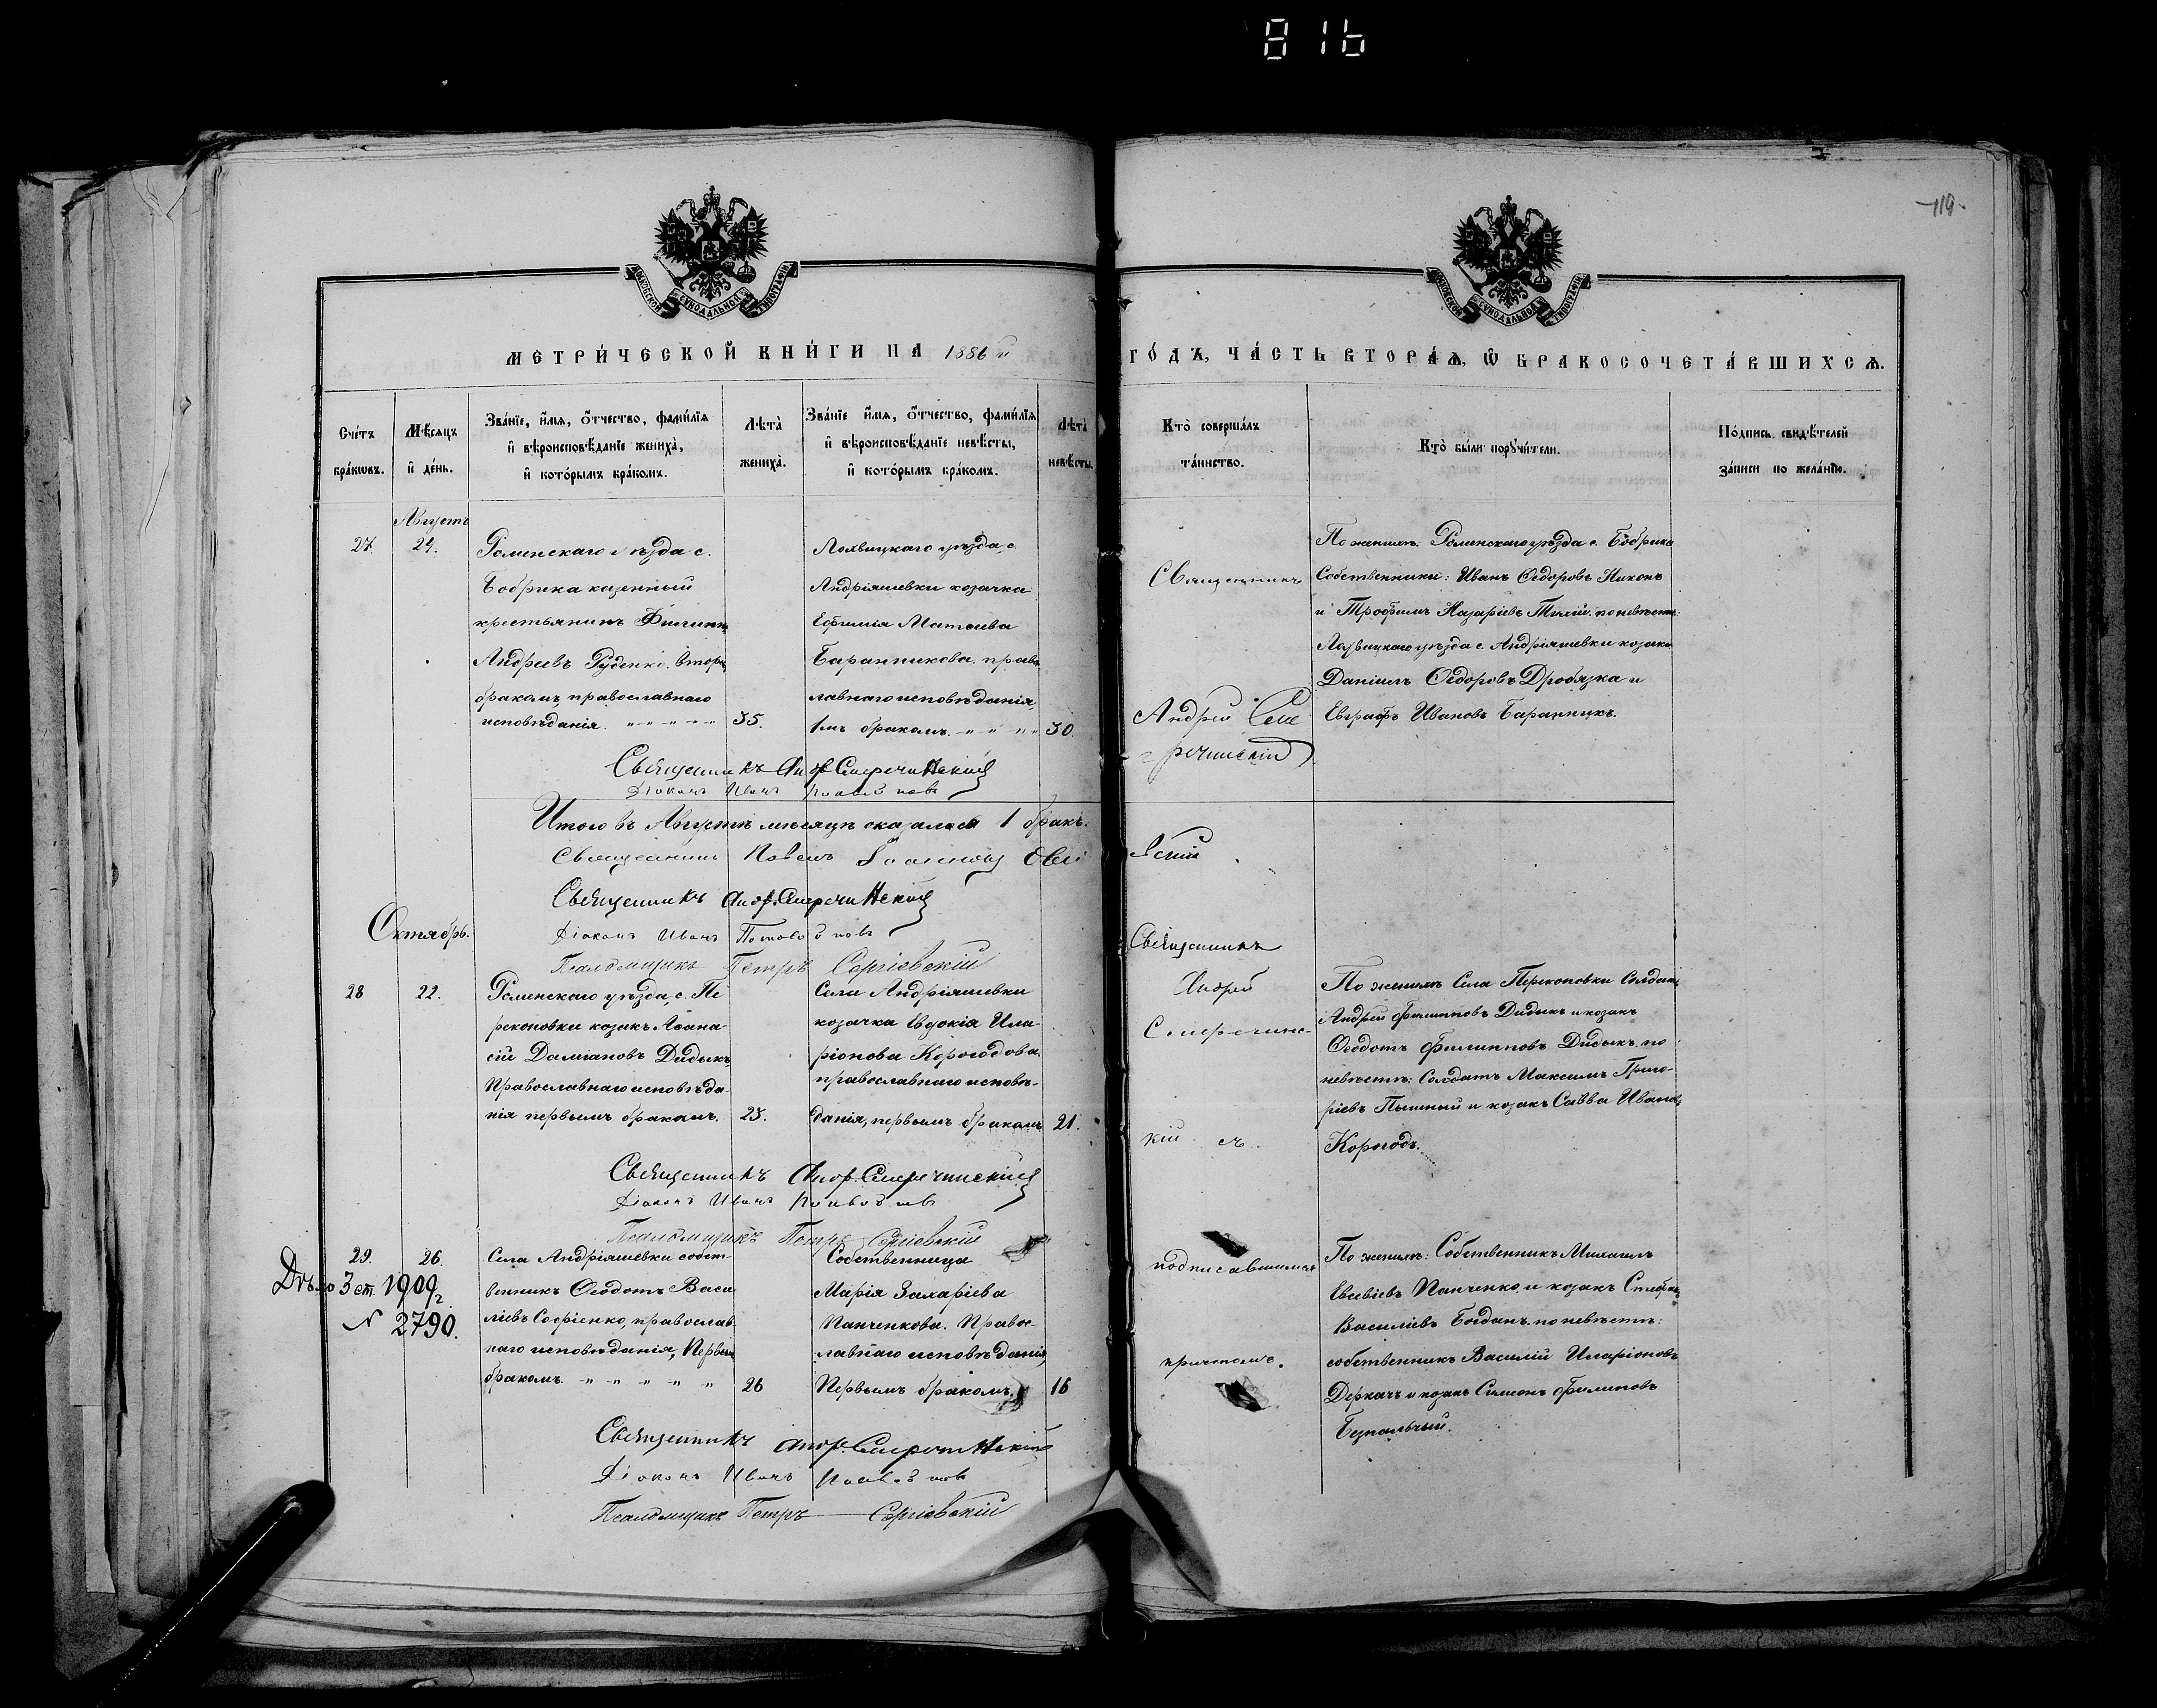 816
119
МОСКОВСКОЙ СѴНОДАЛЬНОЙ ТИПОГРАФІИ
МОСКОВСКОЙ СѴНОДАЛЬНОЙ ТИПОГРАФІИ
МЕТРИ́ЧЕСКОЙ КНИ́ГИ НА 1886 й
ГО́ДЪ, ЧА́СТЬ ВТОРА́Ѧ, Ѿ БРАКОСОЧЕТА́ВШИХСѦ.
Сче́тъ бра́ковъ.
Мѣ́сяцъ и де́нь.
Зва́нїе, и́мѧ, о́тчество, фами́лїѧ
и вѣроисповѣ́данїе жениха̀,
и кото́рымъ бра́комъ.
Лѣ́та жениха̀.
Зва́нїе и́мѧ, о́тчество, фами́лїѧ
и вѣроисповѣ́данїе невѣ́сты,
и кото́рымъ бра́комъ.
Лѣ́та невѣ́сты.
Кто̀ соверша́лъ
та́инство.
Кто̀ были порꙋчи́тели.
По́дпись свидѣ́телей
за́писи по жела́нїю.
Августъ
27. 24.
Роменскаго уѣзда с.
Бобрика казенный
крестьянинъ Филиппъ
Андреевъ Руденко. вторы
бракомъ, православнаго
исповѣданія. " " " " 35.
Лохвицкаго уѣзда, с.
Андріяшевки козачка
Ефимія Матѳеева
Баранникова. правос
лавнаго исповѣданія,
1мъ бракомъ. " " " " 30.
Священникъ
Андрей Сме
речинскій
По женихѣ. Роменскаго уѣзда с. Бобрика
Собственники: Иванъ Ѳедоровъ Никонъ
и Трофимъ Назаріевъ Тихій. по невѣстѣ:
Лохвицкаго уѣзда с. Андріяшевки козаки
Даніилъ Ѳедоровъ Дробязка и
Евграфъ Ивановъ Баранникъ.
Священникъ Андр. Смеречинскій
Діаконъ Иванъ
Итого въ Августѣ мѣсяцѣ оказалось 1 бракъ.
Священникъ Павелъ
Священникъ Андр. Смеречинскій
Діаконъ Иванъ
Псаломщикъ Петръ Сергіевскій
Октябрь.
28 22.
Роменскаго уѣзда, с. Пе
рекоповки козакъ Аѳана
сій Даміановъ Дидыкъ,
Православнаго исповѣда
нія первымъ бракомъ. 25.
Села Андріяшевки
козачка Евдокія Ила-
ріонова Корогодова.
православнаго исповѣ-
данія, первымъ бракомъ 21.
Священникъ
Андрей
Смеречинс-
кій съ
По женихѣ Села Перекоповки Солдатъ
Андрей Филипповъ Дидыкъ и козакъ
Ѳеодотъ Филипповъ Дидыкъ, по
невѣстѣ: Солдатъ Максимъ Григо-
ріевъ Пышный и козакъ Савва Ивановъ
Корогодъ.
Священникъ Андр. Смеречинскій
Діаконъ Иванъ
Псаломщикъ Петръ Сергіевскій
29. 26.
Дѣло 3 ст. 1909 г.
№ 2790.
Села Андріяшевки собст-
венникъ Ѳеодотъ Васи
ліевъ Софіенко, православ-
наго исповѣданія, Первым
бракомъ. " " " " " 26
Собственница
Марія Захаріева
Панченкова. Правос-
лавнаго исповѣданія,
Первымъ бракомъ. 16
подписавшимся
причтомъ.
По женихѣ: Собственникъ Михаилъ
Евсевіевъ Панченко, и козакъ Стефанъ
Василіевъ Богданъ. по невѣстѣ:
собственникъ Василій Иларіоновъ
Деркачъ и козакъ Симеонъ Филиповъ
Безпальчый.
Священникъ Андр. Смеречинскій
Діаконъ Иванъ
Псаломщикъ Петръ Сергіевскій